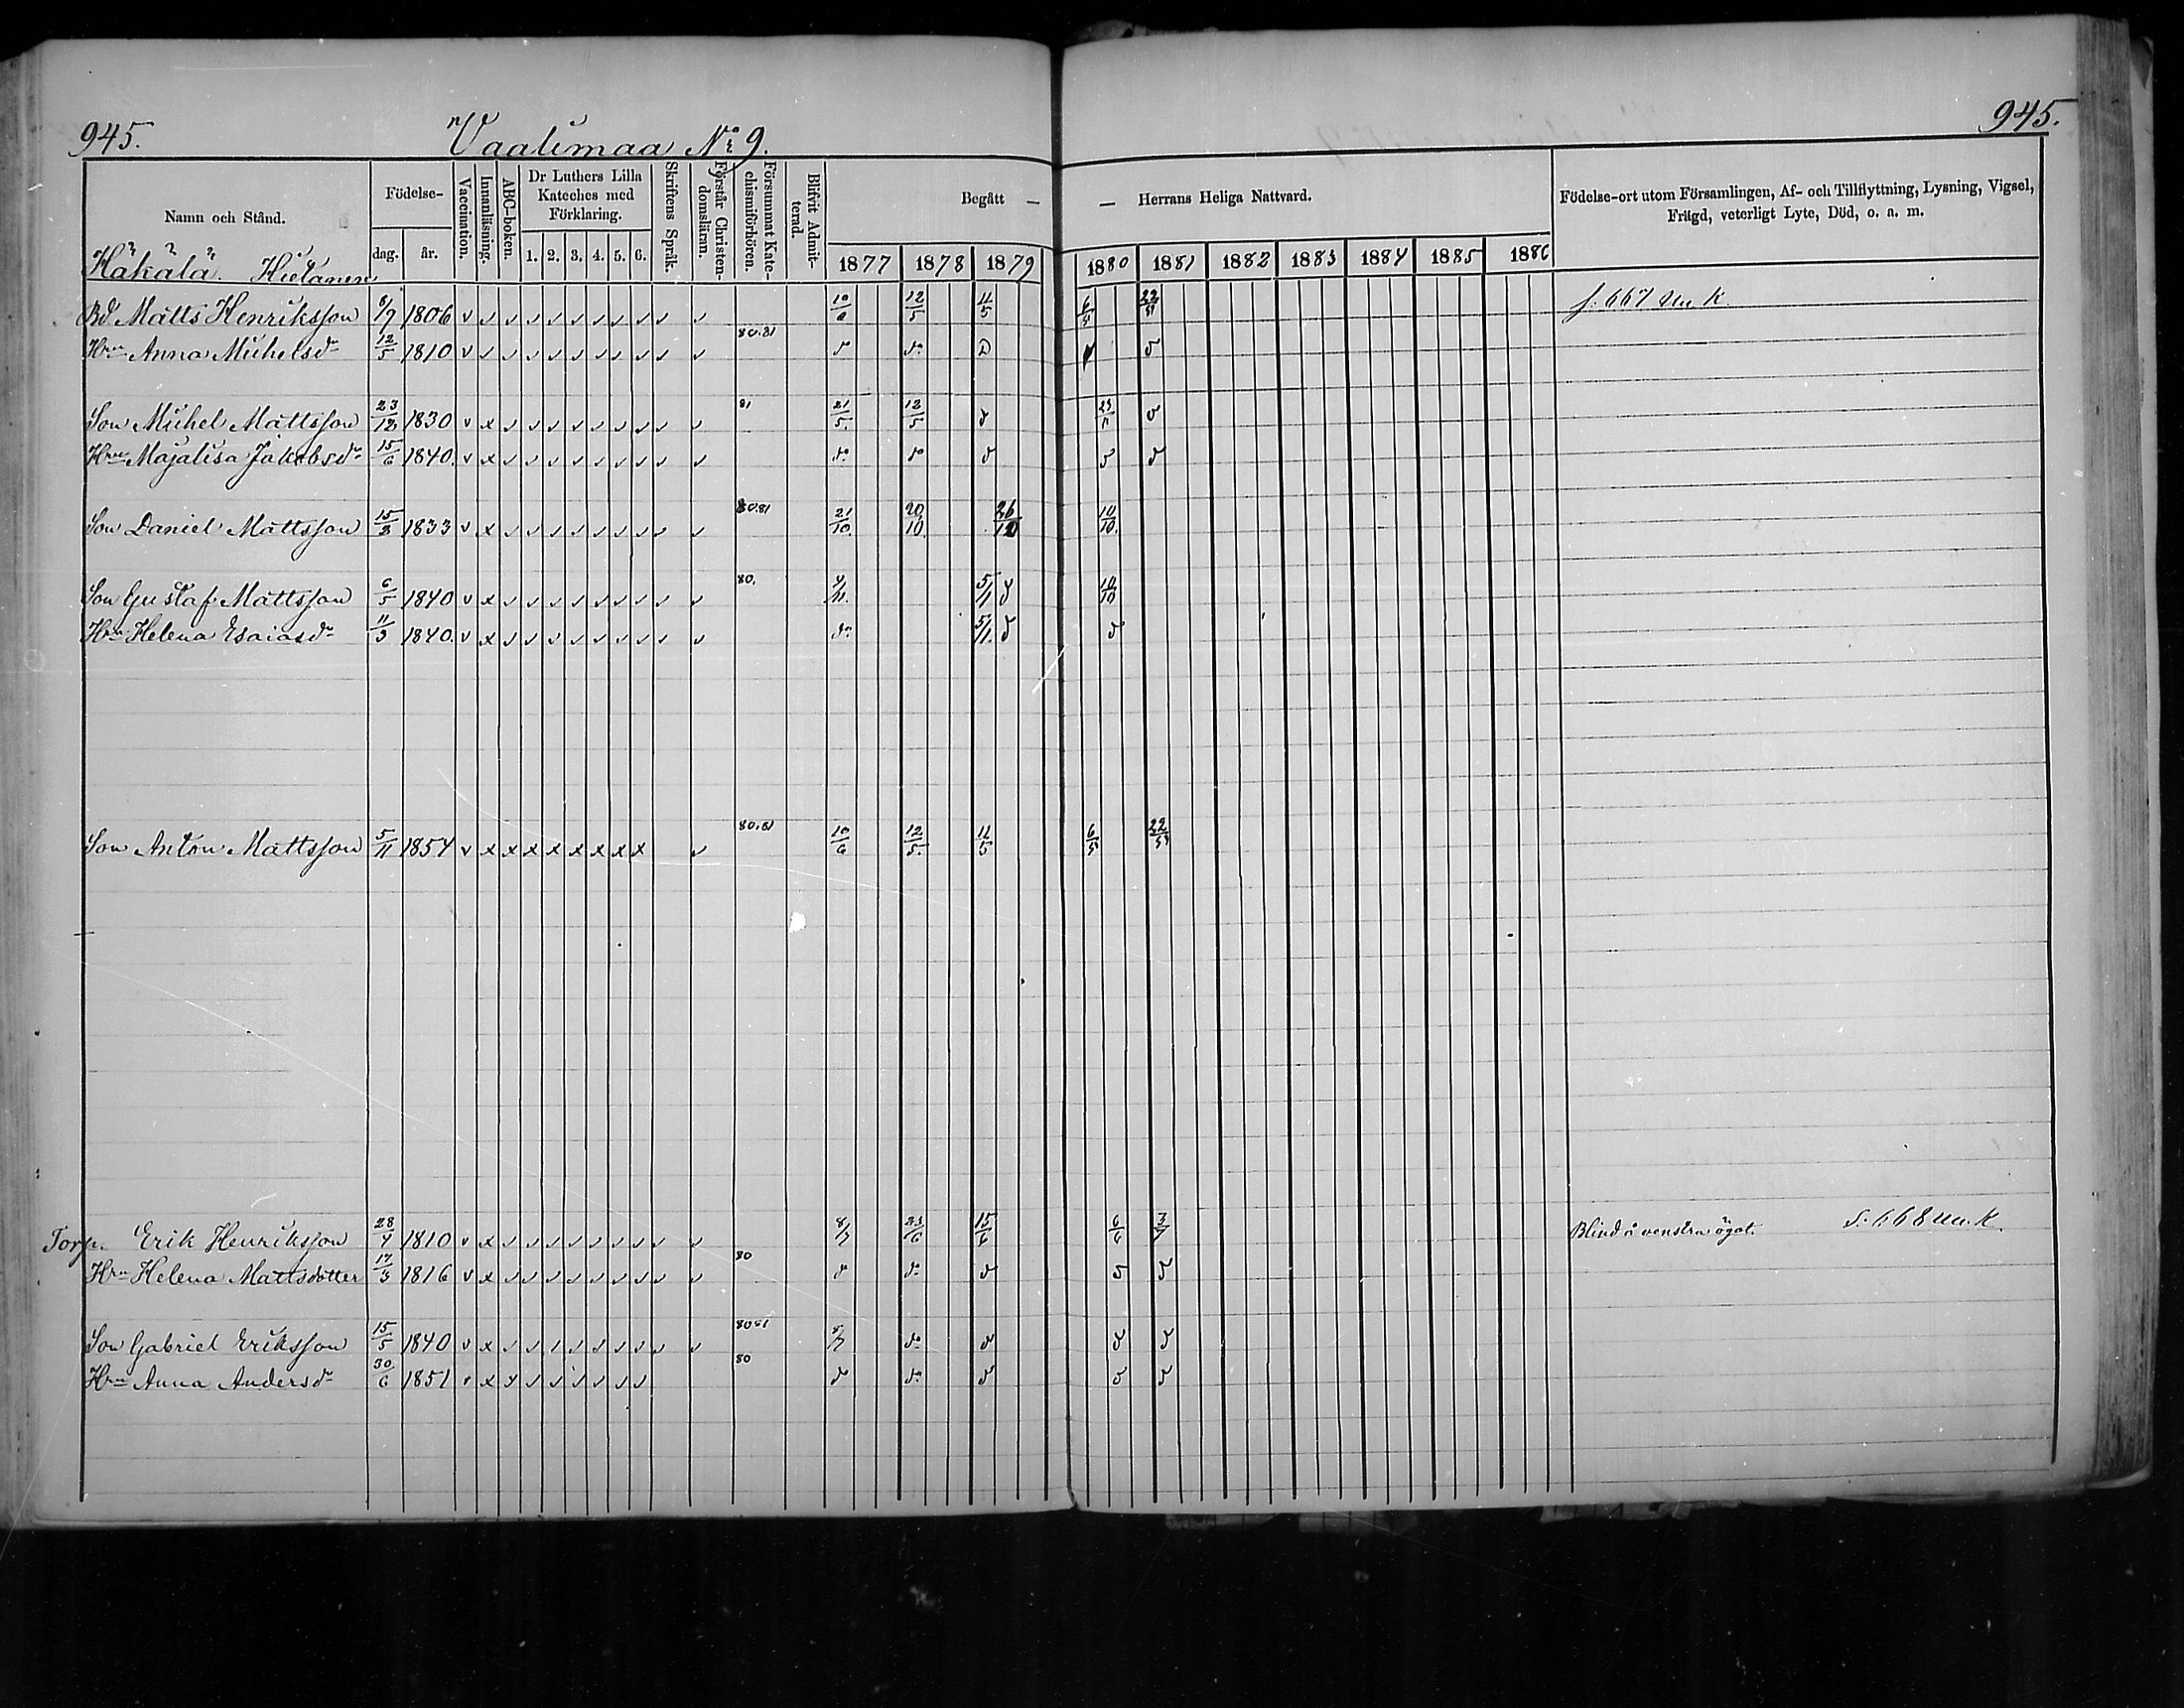 945.
Vaalimaa No 9.
945.
Namn och Stånd.
Födelse-
dag.
år.
Vaccination.
Innanläsning.
ABC-boken.
Dr Luthers Lilla
Kateches med
Förklaring.
1. 2. 3. 4. 5. 6.
Skriftens Språk.
Förstår Christen-
domsläran.
Försummat Kate-
chismiförhören.
Blifvit Admit-
terad.
Begått —
— Herrans Heliga Nattvard.
Födelse-ort utom Församlingen, Af- och Tillflyttning, Lysning, Vigsel,
Frägd, veterligt Lyte, Död, o. a. m.
1877 1878 1879 1880 1881 1882 1883 1884 1885 1886
Häkälä. Hietanen
Bd Matts Henriksson 6/7 1806 v v v v v v v v v v v 10/6 12/5 11/5 6/5 22/5 s. 667 u. K.
Hru Anna Michelsdr 12/5 1810 v v v v v v v v v v v 80.81
Son Michel Mattsson 23/12 1830 v x v v v v v v v v v 81 21/5. 12/5
Hru Majalisa Jakobsdr 15/6 1840. v x v v v v v v v v v
Son Daniel Mattsson 15/3 1833 v x v v v v v v v v v 80.81 21/10. 20/10. 26/12 10/10.
Son Gustaf Mattsson 6/5 1840 v x v v v v v v v v v 80. 4/11. 5/1 10/10
Hru Helena Esaiasdr 11/3 1840. v x v v v v v v v v v 5/1.
Son Anton Mattsson 5/11 1854 v x x x x x x x x v 80.81 10/6 12/5. 11/5 6/5 22/5
Torp. Erik Henriksson 28/4 1810 v x v v v v v v v v v 8/7 23/6 15/6 6/6 3/7 Blind å venstra ögat. S. 668 u. K.
Hru Helena Mattsdotter 17/3 1816 v x v v v v v v v v v 80
Son Gabriel Eriksson 15/5 1840 v x v v v v v v v v v 80 81 8/7
Hru Anna Andersdr 30/6 1851 v x x v v v v v v 80